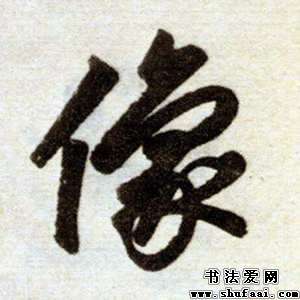 像
书法爱网
www.shufaai.com